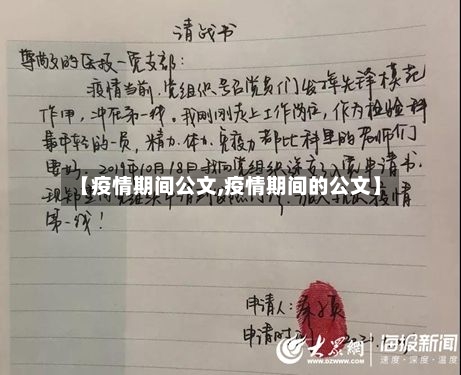 请战书
尊敬的医技一党支部：
疫情当前,党组织号召党员们发挥先锋模范
作用,冲在第一线。我刚刚走上工作岗位,作为检验科
最年轻的一员,精力、体力、免疫力都比科里的老师们
要好。2019年10月18日我向党组织递交了入党申请书,
【疫情期间公文,疫情期间的公文】
现郑重向党组织申请
疫情
第一线！
申请人：
申请时
大众网 海报新闻
www.dzwww.com 速度·深度·温度